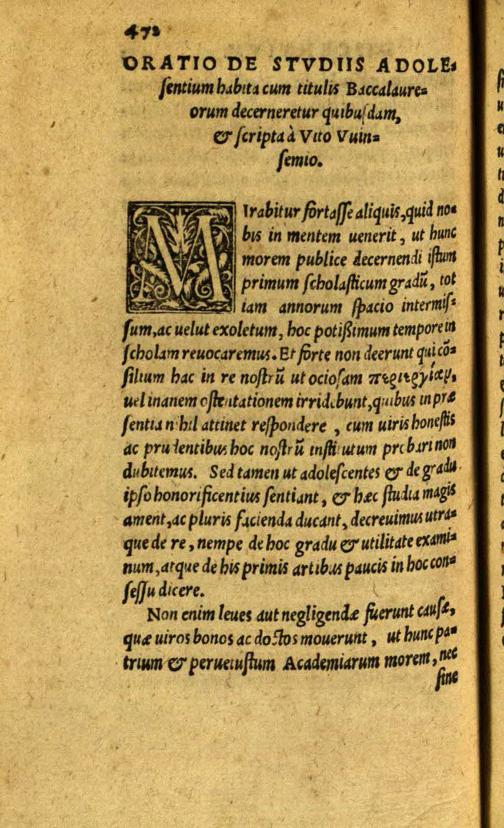 472
ORATIO DE STVDIIS ADOLE-
ſentium habita cum titulis Baccalaure-
orum decerneretur quibuſdam,
& ſcripta à Vito Vuin-
ſemio.
MIrabitur fortaſſe aliquis, quid no-
bis in mentem uenerit, ut hunc
morem publice decernendi iſtum
primum ſcholaſticum gradũ, tot
iam annorum ſpacio intermiſ-
ſum, ac uelut exoletum, hoc potißimum tempore in
ſcholam reuocaremus. Et forte non deerunt qui cõ-
ſilium hac in re noſtrũ ut ocioſam περιεργίαν,
uel inanem oſtentationem irridebunt, quibus in præ
ſentia nihil attinet reſpondere, cum uiris honeſtis
ac prudentibus hoc noſtrũ inſtitutum probari non
dubitemus. Sed tamen ut adoleſcentes & de gradu
ipſo honorificentius ſentiant, & hæc ſtudia magis
ament, ac pluris facienda ducant, decreuimus utra-
que de re, nempe de hoc gradu & utilitate exami-
num, atque de his primis artibus paucis in hoc con-
ſeſſu dicere.
Non enim leues aut negligendæ fuerunt cauſæ,
quæ uiros bonos ac doctos mouerunt, ut hunc pa-
trium & peruetuſtum Academiarum morem, nec
ſine